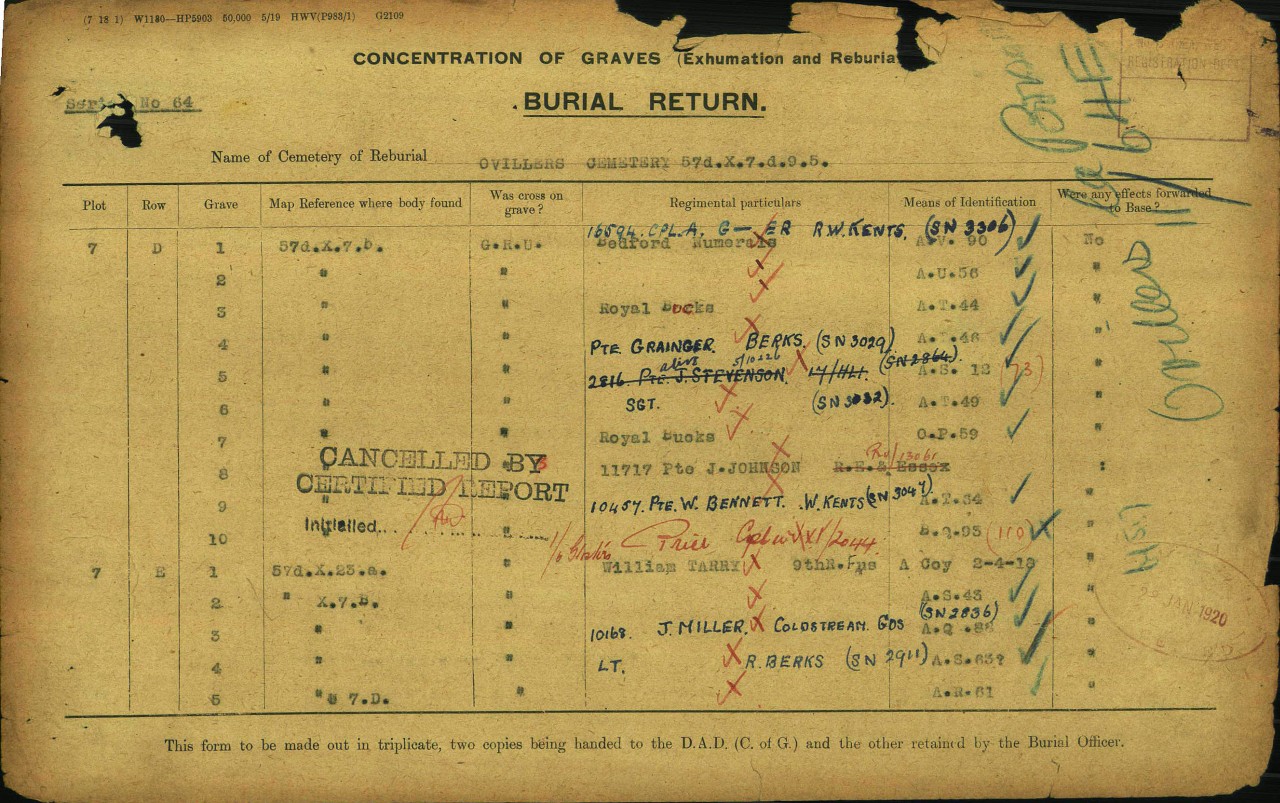 (7 18 1) W1180—HP5903 50,000 5/19 HWV(P983/1) G2109
CONCENTRATION OF GRAVES (Exhumation and Reburia
BURIAL RETURN.
No 64
Name of Cemetery of Reburial OVILLERS CEMETERY 57d.X.7.d.9.5.
Plot Row Grave Map Reference where body found Was cross on grave? Regimental particulars Means of Identification Were any effects forwarded to Base?
16594. CPL.A. G— ER R.W.KENTS. (SN 3306)
7 D 1 57d.X.7.b. G.R.U. Bedford Numerals A.V. 90 No
2 " " A.U.56 "
3 " " Royal Bucks A.T.44 "
4 " " PTE GRAINGER. BERKS. (SN3029) A.T.46 "
alive 5/10226 (SN2864).
5 " " 2816. PTE. J. STEVENSON. 17/HLI. A.S. 12 (73) "
6 " " SGT. (SN3032). A.T.49 "
7 " " Royal Bucks O.P.59 "
CANCELLED BY
8 " 11717 Pte J.JOHNSON R.E.& Essex 13061
CERTIFIED REPORT
9 " " 10457. PTE. W. BENNETT. W.KENTS (SN3047). A.T.34 "
Initialled
10 " Price /2044. B.Q.93 (110) "
7 E 1 57d.X.23.a. " William TARRY 9thR.Fus A Coy 2-4-18 "
2 " X.7.B. " A.S.43 "
3 " " 10168. J. MILLER. COLDSTREAM. GDS (SN2836) A.Q. "
4 " " LT. R.BERKS (SN 2911) A.S.63? "
5 " 7.D. " A.R.61 "
JAN 1920
This form to be made out in triplicate, two copies being handed to the D.A.D. (C. of G.) and the other retained by the Burial Officer.